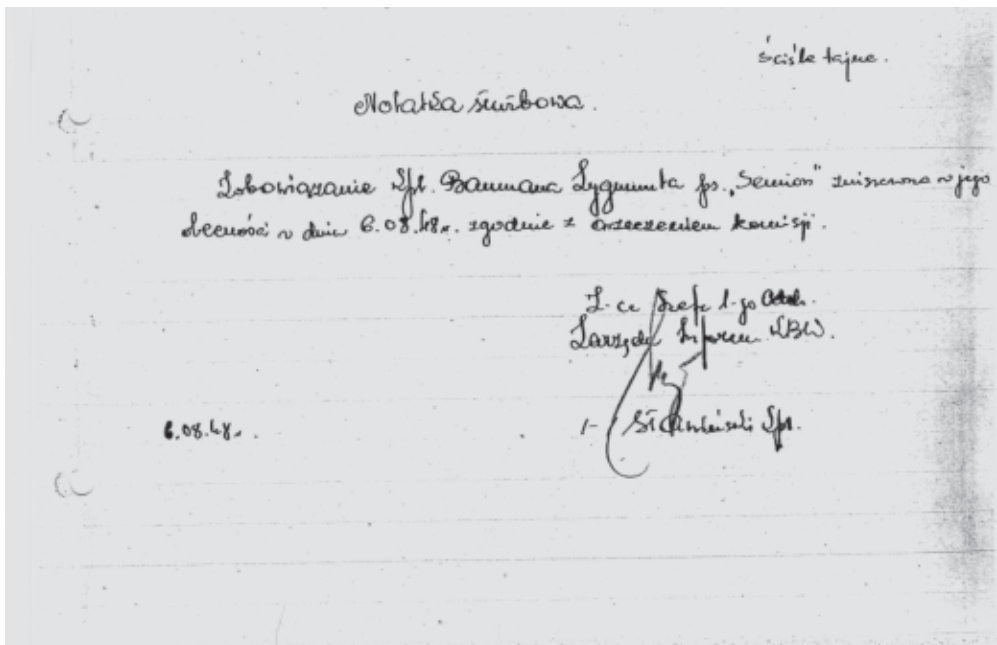 ściśle tajne.
Notatka służbowa.
Zobowiązanie kpt. Baumana Zygmunta ps. „Semion" zniszczono w jego
obecności w dniu 6.08.48r. zgodnie z orzeczeniem komisji.
Z-ca Szefa 1-go Oddz.
Zarządu Inform. KBW.
6.08.48r.
kpt.